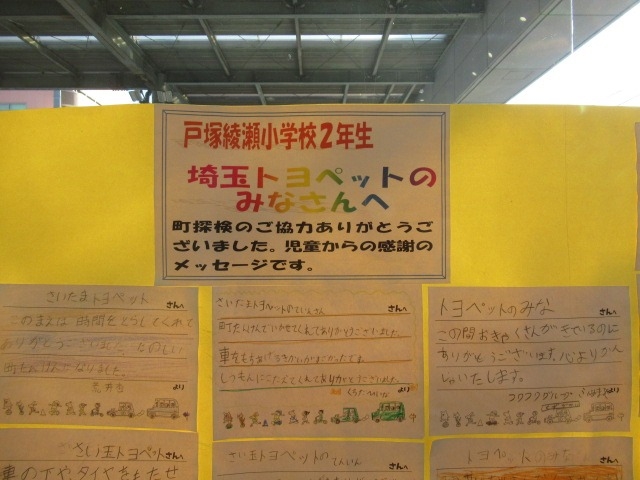 戸塚綾瀬小学校2年生
埼玉トヨペットの
みなさんへ
町探検のご協力ありがとうご
ざいました。児童からの感謝の
メッセージです。
さいたまトヨペット さんへ
このまえは 時間をとうしてくれて
ありがとうございました。たのしい
町たんけんになりました。
より
さいたまトヨペットのていいんさん さんへ
町たんけんでいかせてくれてありがとうございました。
車をもちあげるきかいがすごかったです。
しつもんにこたえてくれてありがとうございました。
より
トヨペットのみな さんへ
この間おきゃくさんがきているのに
ありがとうございます。心よりかん
しゃいたします。
より
さい玉トヨペット さんへ
車の下やタイヤをもたせ
さい玉トヨペットの てんいん さんへ
トヨペットのみな さんへ